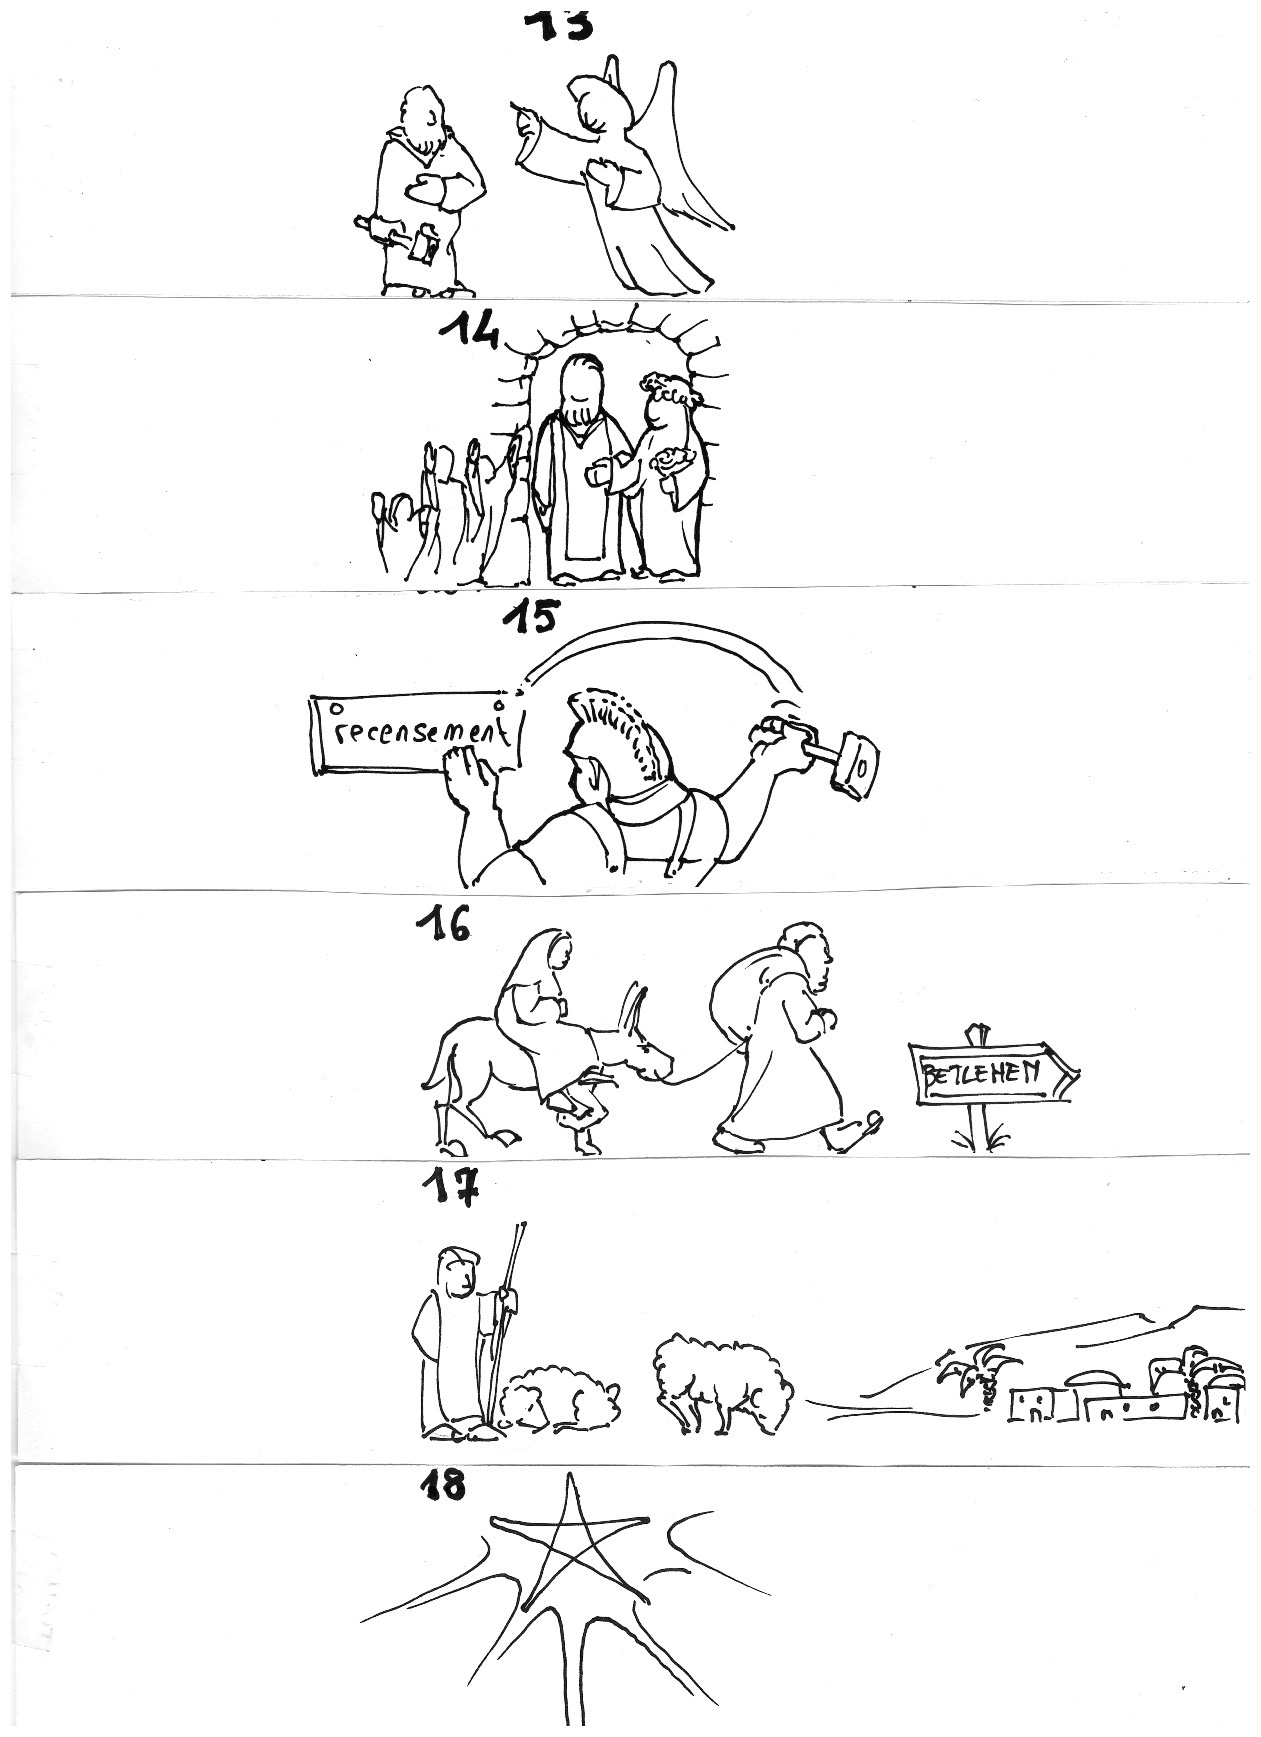 13
14
15
recensement
16
BETLEHEM
17
18